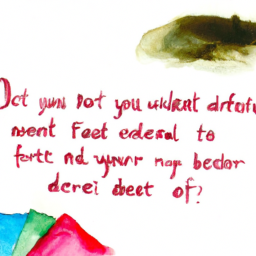 Oct yun not you uklkant drfotu
nent Feet ederal to
fertt nd yurnr nay bedor
derei deet of?